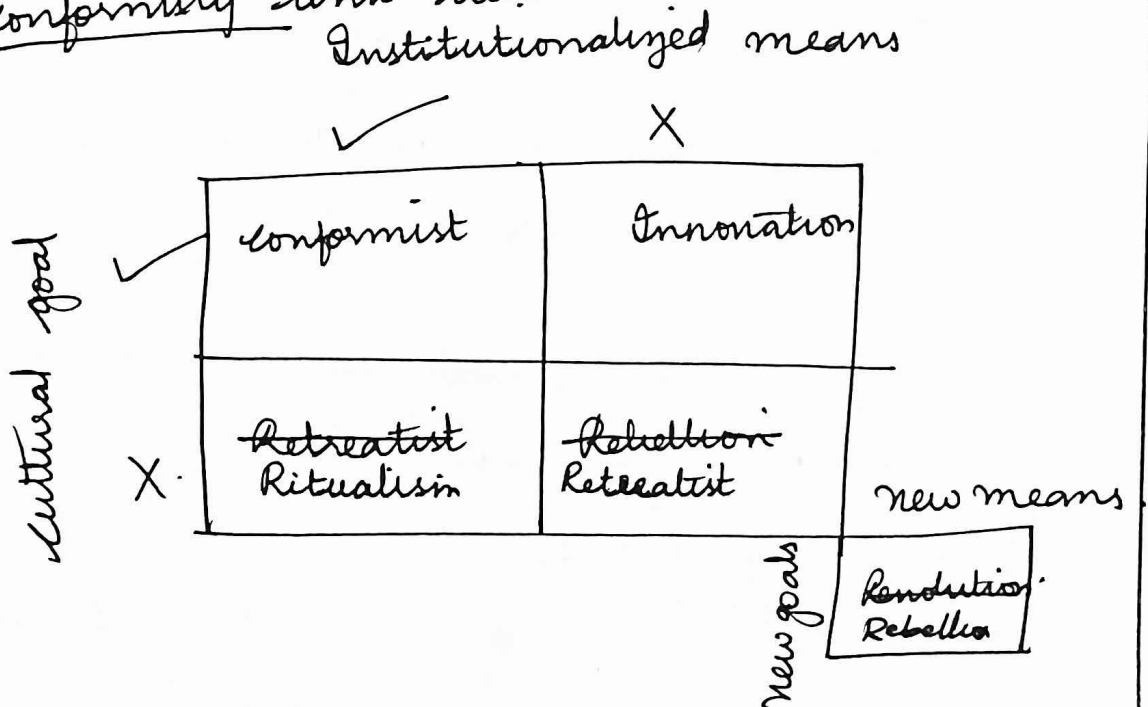 Institutionalized means
✓ X
Cultural goal
✓
conformist
Innovation
X.
Retreatist
Ritualism
Rebellion
Retreatist
new means.
new goals
Rebellio